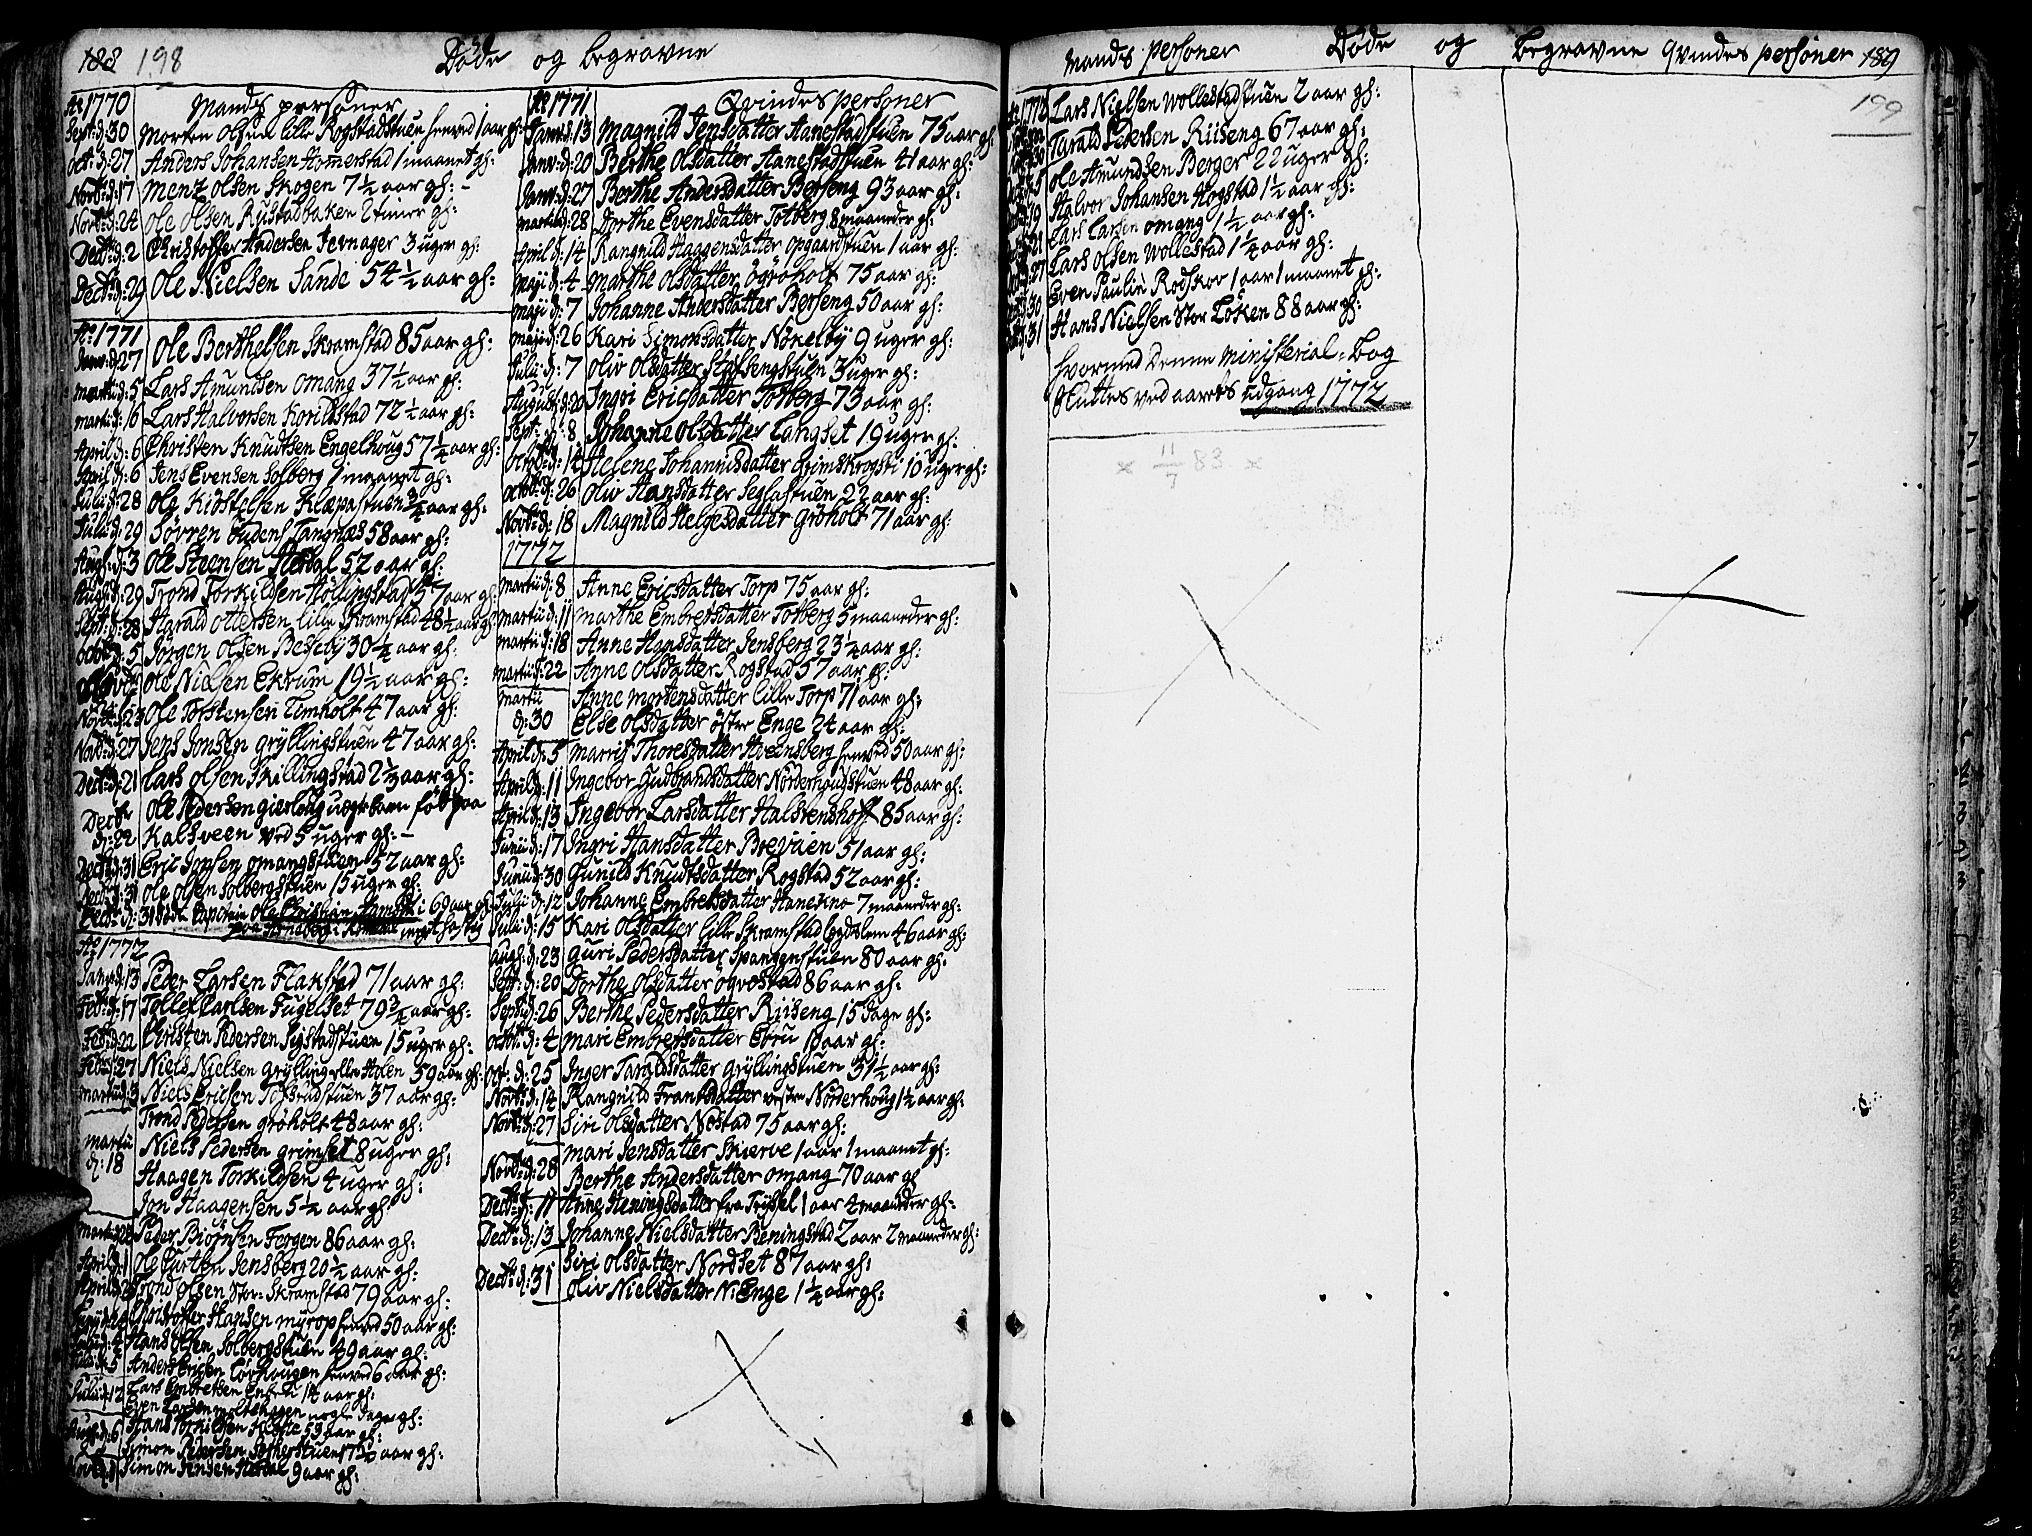 188 198 Døde og begravne
Ao 1770 Mands personer
Sept: d: 30 Morten Olsen lille Rogstadstuen henved 1 aar gh:
Oct: d: 27 Anders Johansen Hommerstad 1 maanet gh:
Novb: d: 17 Menz Olsen Skogen 7 1/2 aar gh: -
Novb: d: 24 Ole Olsen Rustadbaken 2 timer gh:
Decb: d: 2 Christopher Andersen Jevnager 3 uger gh:
Decb: d: 29 Ole Nielsen Sande 54 1/2 aar gh:
Ao 1771
Janv: d: 27 Ole Berthelsen Skramstad 85 aar gh:
martii d: 5 Lars Amundsen Omang 37 1/2 aar gh:
martii d: 16 Lars Halvorsen 72 1/2 aar gh:
April d: 6 Christen Knudtsen Engelhoug 57 1/2 aar gh:
April d: 6 Jens Evensen Solberg 1 maanet gh:
Julii d: 28 Ole Kiøstelsen Klæpastuen 3/4 aar gh:
Julii d: 29 Søvren Tangnæs 58 aar gh:
Aug: d: 3 Ole Steensen 52 aar gh:
Aug: d: 29 Trond Torkildsen Hollingstad 37 aar gh:
Sept: d: 28 Harald Ottersen lille Skramstad 48 1/2 aar gh:
Octb: d: 5 Jørgen Olsen Beseby 30 1/4 aar gh:
Ole Nielsen Ekrum 19 1/2 aar gh:
Novb: d: 23 Ole Torstensen Timholt 47 aar gh:
Novb: d: 27 Jens Jonsen Gryllingstuen 47 aar gh:
Decb: d: 21 Lars Olsen Skillingstad 2 1/2 aar gh:
Decb: d: 22 Ole Pedersen uægte barn fød paa
Kalsveen ved 5 uger gh: -
Decb: d: 31 Eric Jonsen Omangstuen 52 aar gh:
Decb: d: 31 Ole Olsen Solbergstuen 15 uger gh:
Decb: d: 31 Capitein Ole Christian 60 aar gh:
Ao 1772
Janv: d: 13 Peder Larsen Flakstad 71 aar gh:
Feb: d: 17 Tollef Carlsen Fugelset 79 3/4 aar gh:
Feb: d: 22 Christen Pedersen Sigstadstuen 15 uger gh:
Feb: d: 27 Niels Nielsen Grylling eller Holen 59 aar gh:
martii d: 3 Niels Ericsen Tofstadstuen 37 aar gh:
Trond Pedersen Grøholt 48 aar gh:
martii d: 18 Niels Pedersen Grimset 8 uger gh:
Haagen Torkildsen 4 uger gh:
Jon Haagensen 5 1/2 aar gh:
Peder Biørnsen Frogen 86 aar gh:
April d: 1 Ole Jensberg 20 1/2 aar gh:
Trond Olsen Stor-Skramstad 79 aar gh:
Christopher Hansen Myrop henved 50 aar gh:
Hans Olsen Solbergstuen 49 aar gh:
Anders Ericsen henved 6 aar gh:
Julii d: 12 Lars Embretsen 14 aar gh:
Even nogle dage gh:
Aug: d: 6 Hans Torkildsen 59 aar gh:
Simon Pedersen aar gh:
Simon Jensen 9 aar gh:
Ao 1771 Qvindes personer
Janv: d: 13 Magnild Jensdatter Aanestadstuen 75 aar gh:
Janv: d: 20 Berthe Olsdatter Aanestadstuen 41 aar gh:
Janv: d: 27 Berthe Andersdatter Berseng 93 aar gh:
martii d: 28 Dorthe Evensdatter Totberg 8 maaneder gh:
April d: 14 Rangnild Haagensdatter Opgaardstuen 1 aar gh:
Maji d: 4 Marthe Olsdatter Grøholt 75 aar gh:
Maji d: 7 Johanne Andersdatter Berseng 50 aar gh:
Maji d: 26 Kari Simonsdatter Nökelby 9 uger gh:
Julii d: 7 Oliv Olsdatter 3 uger gh:
August d: 20 Ingri Ericsdatter Totberg 73 aar gh:
Sept: d: 8 Johanne Olsdatter Langset 19 uger gh:
Octb: d: 14 Helene Johannisdatter 10 uger gh:
Octb: d: 26 Oliv Hansdatter Seglastuen 22 aar gh:
Novb: d: 18 Magnild Helgesdatter Grøholt 71 aar gh:
1772
martii d: 8 Anne Ericsdatter Torp 75 aar gh:
martii d: 11 Marthe Embretsdatter Totberg 5 maaneder gh:
martii d: 18 Anne Hansdatter Jensberg 23 1/4 aar gh:
martii d: 22 Anne Olsdatter Rogstad 57 aar gh:
martii d: 30 Anne Mortensdatter lille Torp 71 aar gh:
Else Olsdatter Öster Enge 24 aar gh:
April d: 5 Marrit Thoresdatter henved 50 aar gh:
April d: 11 Ingebor Gudbrandsdatter Norderhougstuen 48 aar gh:
April d: 13 Ingebor Larsdatter Halstenshoff 85 aar gh:
Junii d: 17 Ingri Hansdatter Brevien 51 aar gh:
Junii d: 30 Gunild Knudtsdatter Rogstad 52 aar gh:
Julii d: 12 Johanne Embretsdatter Hanekno 7 maaneder gh:
Julii d: 15 Kari Olsdatter lille Skramstad legdslem 46 aar gh:
Aug: d: 23 Guri Pedersdatter Spangenstuen 80 aar gh:
Sept: d: 20 Dorthe Olsdatter 86 aar gh:
Sept: d: 26 Berthe Pedersdatter Riiseng 15 dage gh:
Octb: d: 4 Mari Embretsdatter Ebru aar gh:
Oct: d: 25 Inger Taraldsdatter Gryllingstuen 31 1/2 aar gh:
Novb: d: 14 Rangnild Frantsdatter Vestre Norderhoug 1 1/2 aar gh:
Novb: d: 27 Siri Olsdatter Nøstad 75 aar gh:
Novb: d: 28 Mari Jensdatter Skierve 1 aar 1 maanet gh:
Berthe Andersdatter Omang 70 aar gh
Decb: d: 11 Anne Heningsdatter fra Trysel 1 aar 4 maaneder gh:
Decb: d: 13 Johanne Nielsdatter Beningstad 2 aar 2 maaneder gh:
Decb: d: 31 Siri Olsdatter Nordset 87 aar gh:
Oliv Nielsdatter N: Enge 1 1/4 aar gh:
Mands personer Døde og Begravne qvindes personer 189
199
Ao 1772 Lars Nielsen Wollestadstuen 2 aar gh:
Tarald Pedersen Riiseng 67 aar gh:
Ole Amundsen Berger 22 uger gh:
Halvor Johansen Hogstad 1 1/2 aar gh:
Lars Larsen Omang 1 1/2 aar gh:
Lars Olsen Wollestad 1 1/4 aar gh:
Even Paulin Rodskov 1 aar 1 maanet gh:
31 Hans Nielsen Stor Löken 88 aar gh:
hvormed denne Ministerial-Bog
Sluttes ved aarets udgang 1772
x 11/7 83 x